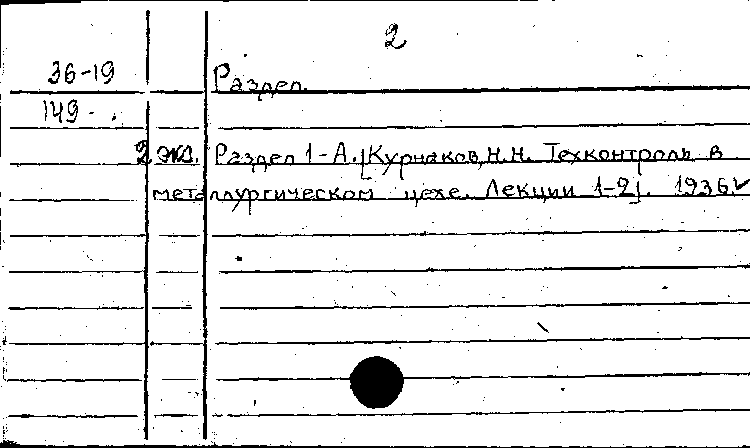 2
36-19 Раздел.
149-.
2 экз. Раздел 1-А. [Курнаков, Н.Н. Техконтроль в
металлургическом цехе. Лекции 1-2]. 1936.